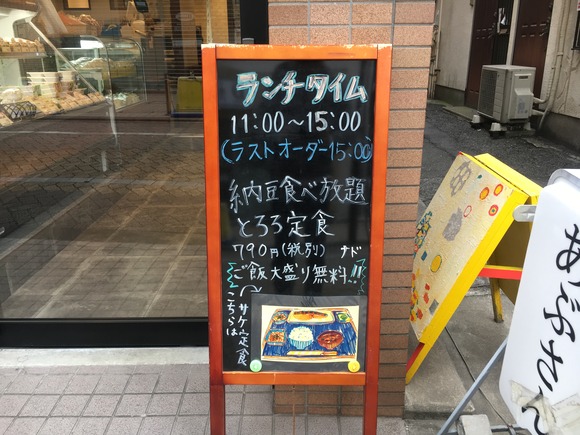 ランチタイム
11:00〜15:00
(ラストオーダー15:00)
納豆食べ放題
とろろ定食
790円(税別) ナド
ご飯大盛り無料!!
こちらは
サケ定食